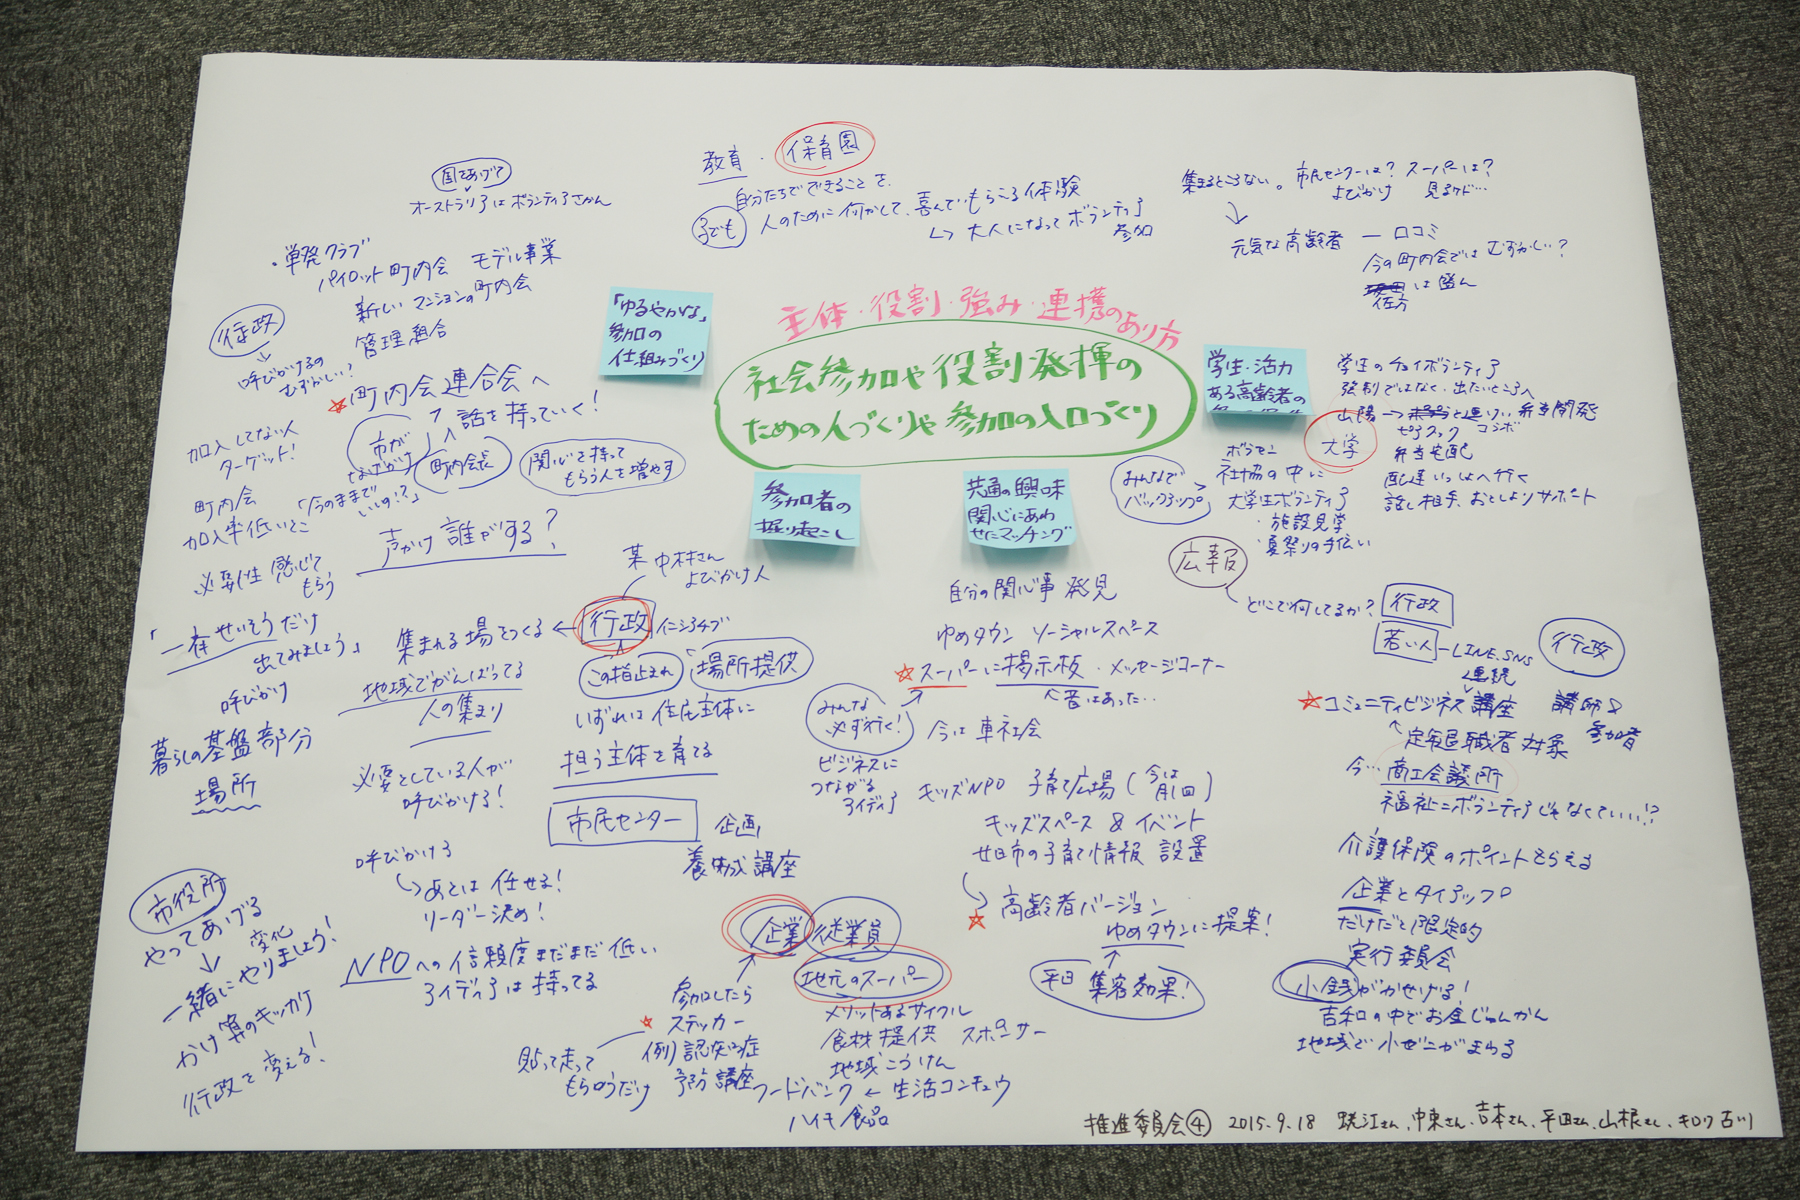 主体・役割・強み・連携のあり方
社会参加や役割発揮の
ための人づくりや参加の入口づくり
「ゆるやかな」
参加の
仕組みづくり
参加者の
掘り起こし
共通の興味
関心にあわ
せたマッチング
学生・活力
ある高齢者の
国をあげて
オーストラリアはボランティアさかん
・単発クラブ
パイロット町内会 モデル事業
新しいマンションの町内会
管理組合
行政
呼びかけるの
むずかしい?
☆町内会連合会へ
話を持っていく!
市が
なげかけ
町内会長
関心を持って
もらう人を増やす
加入してない人
ターゲット!
町内会
加入率低いとこ
「今のままで
いいの!?」
声かけ 誰がする?
必要性 感じて
もらう
「一年せいそうだけ
出てみましょう」
呼びかけ
暮らしの基盤部分
場所
教育・保育園
自分たちでできることを、
子ども
人のために何かして、喜んでもらえる体験
↳ 大人になってボランティア
参加
集まるところない。市民センターは? スーパーは?
よびかけ 見るケド…
元気な高齢者 ー 口コミ
今の町内会ではむずかしい?
佐方は盛ん
学生のチョイボランティア
強制ではなく、出たいところへ
山陽→ 弁当開発
大学
ピアクック コラボ
弁当宅配
配達いっしょへ行く
話し相手、おとしよりサポート
みんなで
バックアップ
ボラセン
社協の中に
大学生ボランティア
・施設見学
・夏祭りの手伝い
広報
どこで何してるか?
行政
若い人ーLINE.SNS
連続
行政
☆コミュニティビジネス講座
講師&
参加者
定年退職者対象
今…商工会議所
福祉=ボランティアじゃなくていい!?
介護保険のポイントもらえる
企業とタイアップ
だけだと限定的
実行委員会
小銭がかせげる!
吉和の中でお金じゅんかん
地域で小ゼニがまわる
某 中村さん
よびかけ人
行政 イニシアチブ
集まれる場をつくる
この指止まれ
「場所提供
地域でがんばってる
人の集まり
いずれは住民主体に
担う主体を育てる
必要としている人が
呼びかける!
市民センター
企画
養成講座
呼びかける
あとは任せる!
リーダー決め!
NPOへの信頼度まだまだ低い
アイディアは持ってる
市役所
やってあげる
変化
一緒にやりましょう!
かけ算のキッカケ
行政を変える!
自分の関心事発見
ゆめタウン ソーシャルスペース
☆スーパーに掲示板・メッセージコーナー
昔はあった…
みんな
必ず行く!
今は車社会
ビジネスに
つながる
アイディア
キッズNPO 子育て広場(今は
月1回)
キッズスペース & イベント
廿日市の子育て情報 設置
☆高齢者バージョン
ゆめタウンに提案!
平日 集客効果!
企業
従業員
地元のスーパー
メリットあるサイクル
食材提供 スポンサー
地域こうけん
フードバンク ← 生活コンキュウ
ハイキ食品
参加したら
☆ステッカー
例)認知症
予防講座
貼って走って
もらうだけ
推進委員会④ 2015.9.18